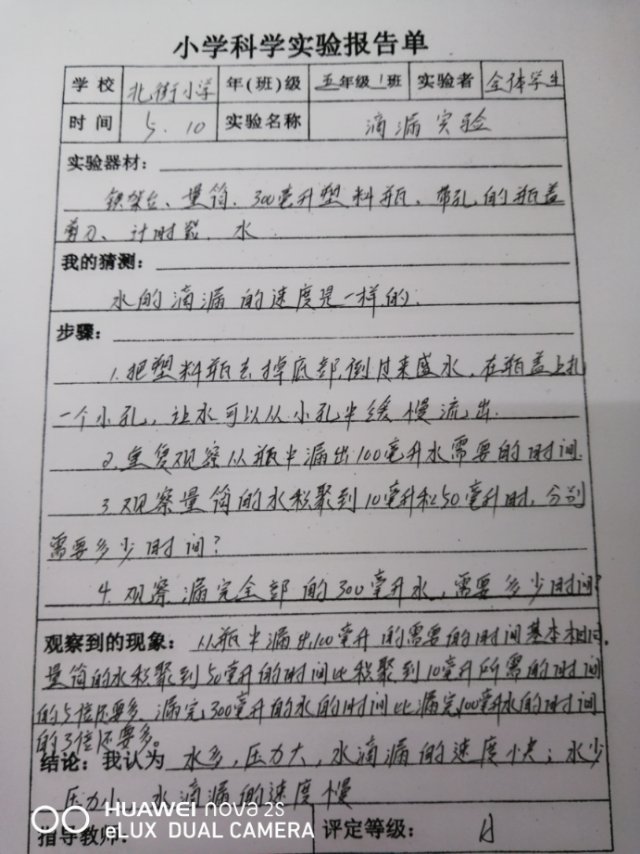 小学科学实验报告单
学校 北街小学 年(班)级 五年级1班 实验者 全体学生
时间 5.10 实验名称 滴漏实验
实验器材:
铁架台、量筒、300毫升塑料瓶、带孔的瓶盖
剪刀、计时器、水
我的猜测:
水的滴漏的速度是一样的.
步骤:
1.把塑料瓶去掉底部倒过来盛水,在瓶盖上扎
一个小孔,让水可以从小孔中缓慢流出.
2.重复观察从瓶中漏出100毫升水需要的时间.
3.观察量筒的水积聚到10毫升和50毫升时,分别
需要多少时间?
4.观察漏完全部的300毫升水,需要多少时间?
观察到的现象:从瓶中漏出100毫升的需要的时间基本相同.
量筒的水积聚到50毫升的时间比积聚到10毫升所需的时间
的5倍还要多.漏完300毫升的水的时间比漏完100毫升水的时间
的3倍还要多。
结论:我认为 水多,压力大,水滴漏的速度快;水少
压力小,水滴漏的速度慢
指导教师: 评定等级: A
HUAWEI nova 2s
eLUX DUAL CAMERA